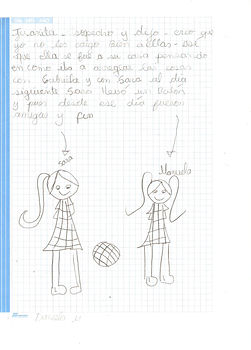 Juanita - sospecho y dijo - creo que
yo no les caigo bien a ellas - así
que ella se fue a su casa pensando
en como iba a arreglar las cosas
con Gabriela y con Sara al dia
siguiente Sara llevo un balón
y pues desde ese día fueron
amigas y fin
Sara
Marcela